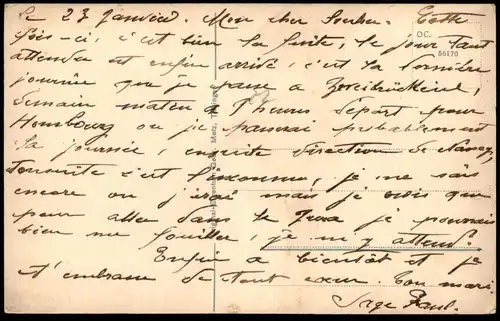 le 23 Janvier. Mon cher Cette
fois-ci, c'est bien la fuite, le jour tant
attendu est enfin arrivé, c'est la dernière
journée que je passe a Zweibrücken,
demain matin a 7 heures départ pour
Hombourg ou je passerai probablement
la journée, ensuite direction de Nancy,
ensuite c'est l'inconnu, je ne sais
encore ou j'irai mais je crois que
pour aller dans le je pourrais
bien me fouiller, je m'y attends.
Enfin a bientôt et je
t'embrasse de tout cœur. Ton mari.
Serge Paul.
OC.
56170